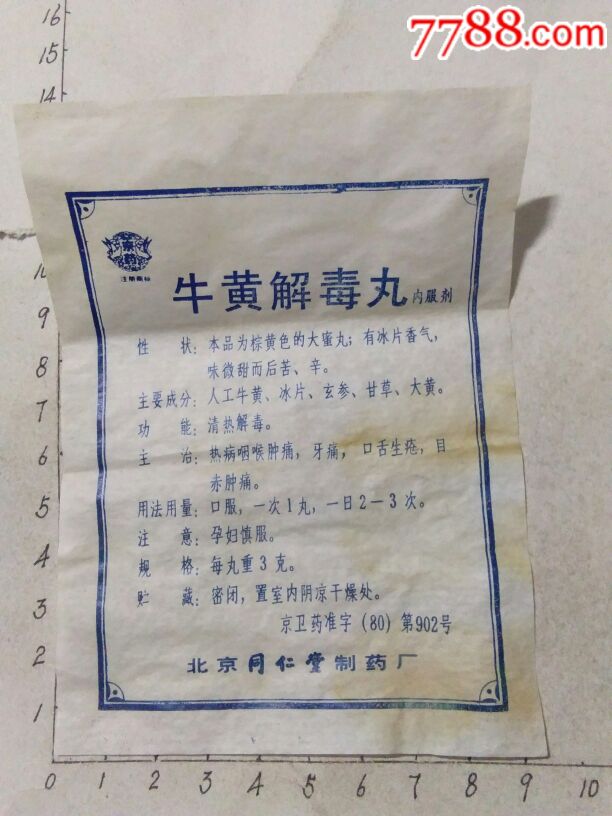 7788.com
16
15
14
京药
注册商标
牛黄解毒丸 内服剂
性 状：本品为棕黄色的大蜜丸；有冰片香气，
味微甜而后苦、辛。
主要成分：人工牛黄、冰片、玄参、甘草、大黄。
功 能：清热解毒。
主 治：热病咽喉肿痛，牙痛，口舌生疮，目
赤肿痛。
用法用量：口服，一次1丸，一日2—3次。
注 意：孕妇慎服。
规 格：每丸重3克。
贮 藏：密闭，置室内阴凉干燥处。
京卫药准字（80）第902号
北京同仁堂制药厂
9
8
7
6
5
4
3
2
1
0 1 2 3 4 5 6 7 8 9 10